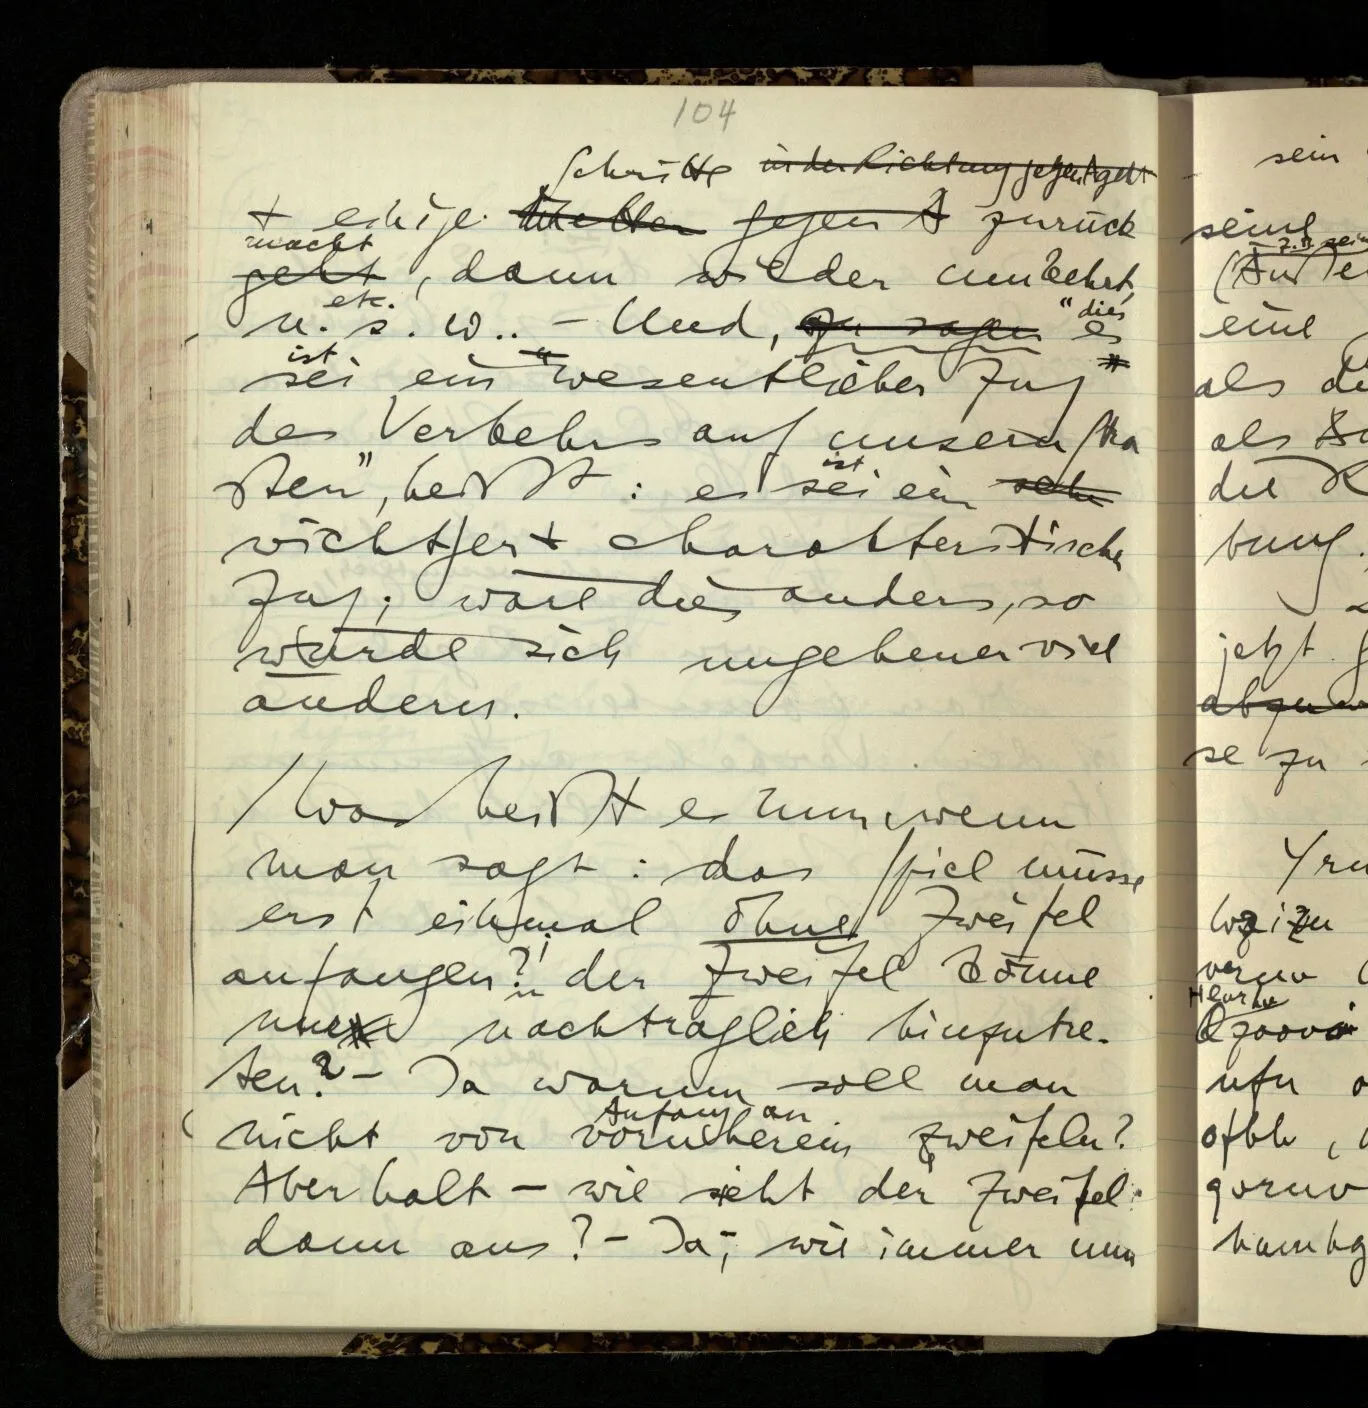 104
Schritte in der Richtung gegen A geht
+ einige Meter gegen A zurück
macht
geht, dann wieder umkehrt,
etc. "dies
u. s. w.. – Und, zu sagen es
ist
sei ein "wesentlicher Zug
des Verkehrs auf unsern Stra
ßen", heißt: es sei ein sehr
ist
wichtiger + charakteristischer
Zug; wäre dies anders, so
würde sich ungeheuer viel
ändern.
/ Was heißt es nun, wenn
man sagt: das Spiel müsse
erst einmal ohne Zweifel
anfangen?! der Zweifel könne
nur nachträglich hinzutre-
ten? – Ja warum soll man
Anfang an
nicht von vornherein zweifeln?
Aber halt – wie sieht der Zweifel
dann aus? – Ja, wie immer nun
sein
seine
z.B. sein
eine
als
als
die
bung.
jetzt
se zu